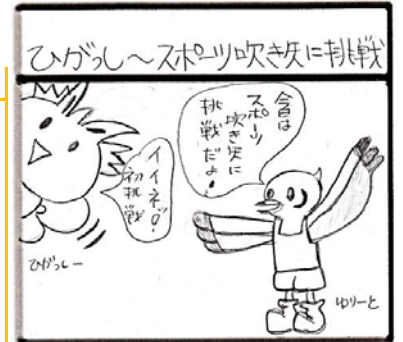 ひがっし～スポーツ吹き矢に挑戦
今日は
スポーツ
吹き矢に
挑戦だよ！
イイネ！
初挑戦
ひがっしー
ゆりーと